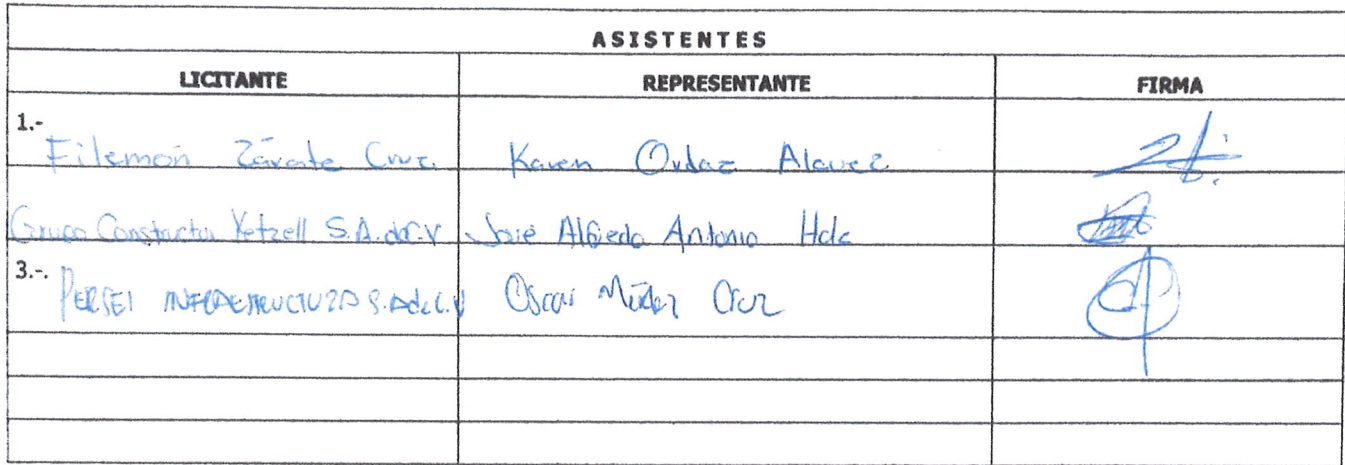 ASISTENTES
LICITANTE REPRESENTANTE FIRMA
1.-
Filemón Zárate Cruz. Karen Ordaz Alavez
Grupo Constructor Yetzell S.A. de C.V José Alfredo Antonio
3.-.
PERSEI INFRAESTRUCTURA S.A de C.V Oscar Cruz